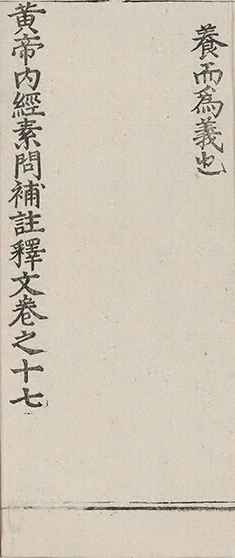 養而為義也
黃帝內經素問補註釋文卷之十七